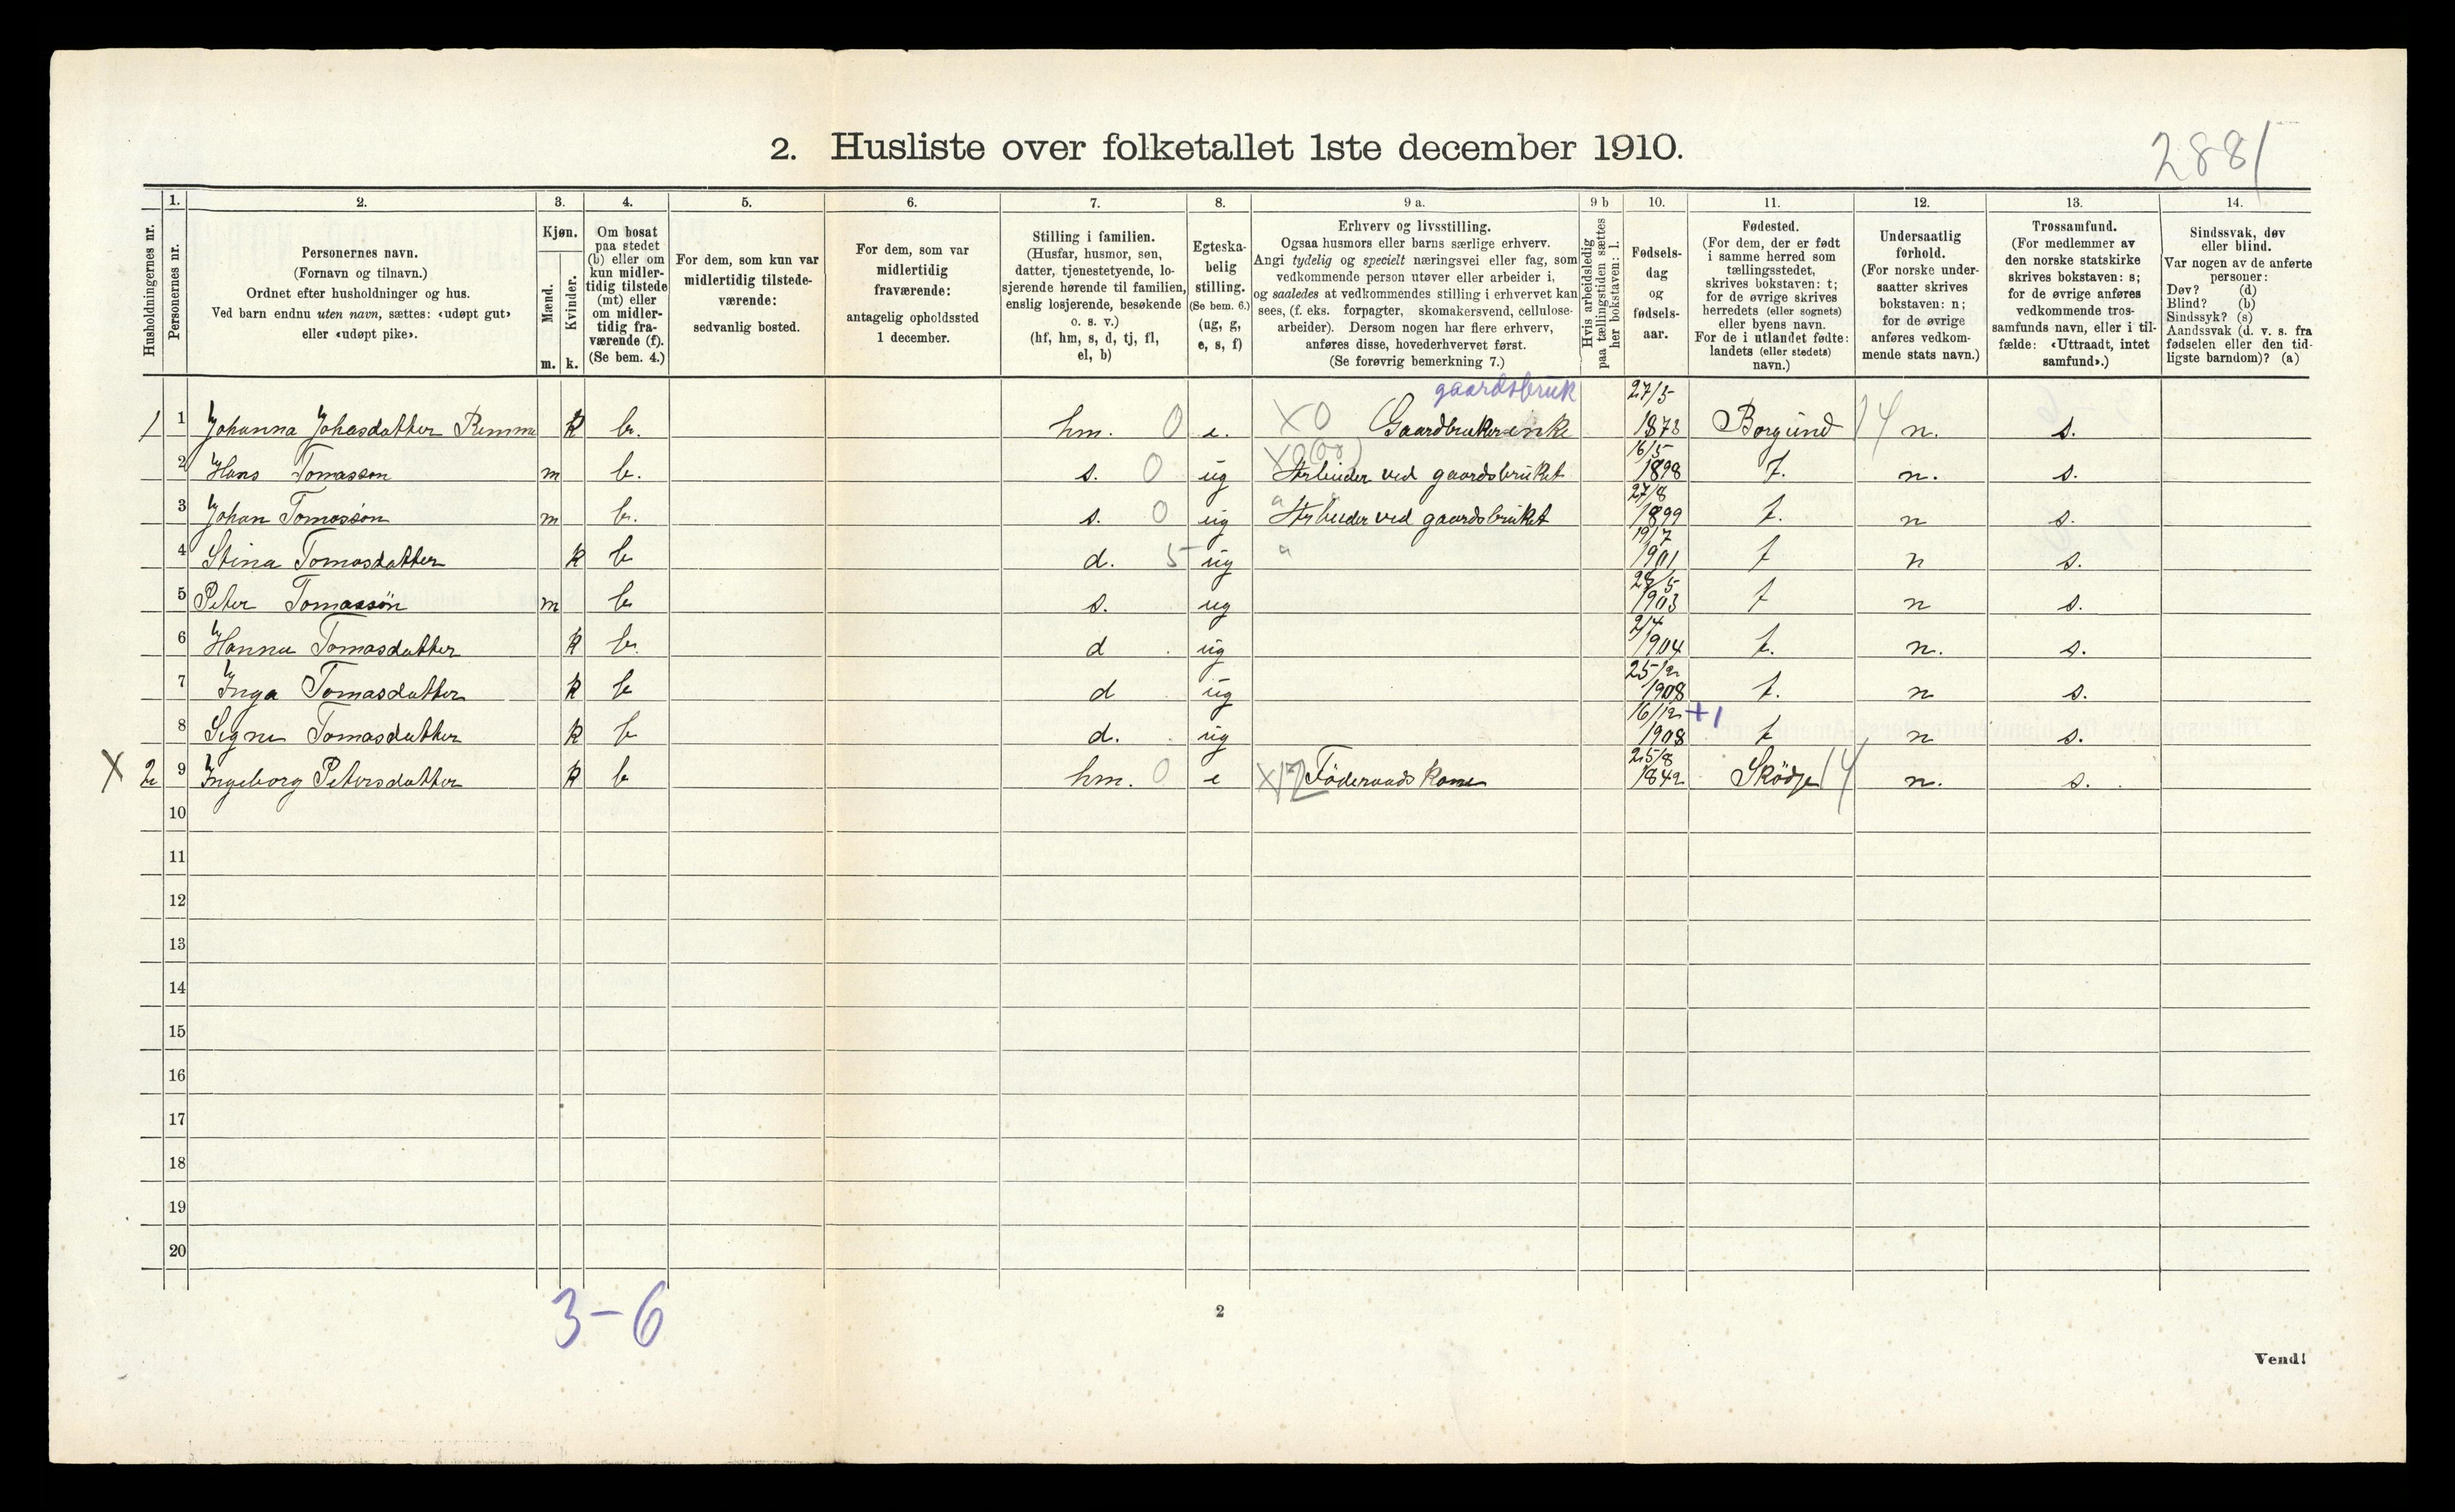 2. Husliste over folketallet 1ste december 1910.
2881
1. 2. 3. 4. 5. 6. 7. 8. 9 a. 9 b 10. 11. 12. 13. 14.
Husholdningernes nr.
Personernes nr.
Personernes navn.
(Fornavn og tilnavn.)
Ordnet efter husholdninger og hus.
Ved barn endnu uten navn, sættes: «udøpt gut»
eller «udøpt pike».
Kjøn.
Mænd.
Kvinder.
m. k.
Om bosat
paa stedet
(b) eller om
kun midler-
tidig tilstede
(mt) eller
om midler-
tidig fra-
værende (f).
(Se bem. 4.)
For dem, som kun var
midlertidig tilstede-
værende:
sedvanlig bosted.
For dem, som var
midlertidig
fraværende:
antagelig opholdssted
1 december.
Stilling i familien.
(Husfar, husmor, søn,
datter, tjenestetyende, lo-
sjerende hørende til familien,
enslig losjerende, besøkende
o. s. v.)
(hf, hm, s, d, tj, fl,
el, b)
Egteska-
belig
stilling.
(Se bem. 6.)
(ug, g,
e, s, f)
Erhverv og livsstilling.
Ogsaa husmors eller barns særlige erhverv.
Angi tydelig og specielt næringsvei eller fag, som
vedkommende person utøver eller arbeider i,
og saaledes at vedkommendes stilling i erhvervet kan
sees, (f. eks. forpagter, skomakersvend, cellulose-
arbeider). Dersom nogen har flere erhverv,
anføres disse, hovederhvervet først.
(Se forøvrig bemerkning 7.)
Hvis arbeidsledig
paa tællingstiden sættes
her bokstaven: l.
Fødsels-
dag
og
fødsels-
aar.
Fødested.
(For dem, der er født
i samme herred som
tællingsstedet,
skrives bokstaven: t;
for de øvrige skrives
herredets (eller sognets)
eller byens navn.
For de i utlandet fødte:
landets (eller stedets)
navn.)
Undersaatlig
forhold.
(For norske under-
saatter skrives
bokstaven: n;
for de øvrige
anføres vedkom-
mende stats navn.)
Trossamfund.
(For medlemmer av
den norske statskirke
skrives bokstaven: s;
for de øvrige anføres
vedkommende tros-
samfunds navn, eller i til-
fælde: «Uttraadt, intet
samfund».)
Sindssvak, døv
eller blind.
Var nogen av de anførte
personer:
Døv? (d)
Blind? (b)
Sindssyk? (s)
Aandssvak (d. v. s. fra
fødselen eller den tid-
ligste barndom)? (a)
gaardsbruk 27/5
1 1 Johanna Johasdatter k b. hm. 0 e. X0 Gaardbrukerenke 1873 Borgund 14 n. s.
16/5
2 Hans Tomasson m b. s. 0 ug Arbeider ved gaardsbruket 1898 t. n. s.
27/8
3 Johan Tomassön m b. s. 0 ug Arbeider ved gaardsbruket 1899 t. n s.
19/7
4 Stina Tomasdatter k b d. 5 ug 1901 t n s.
5 Peter Tomassön m b s. ug 1903 t n s.
2/4
6 Hanna Tomasdatter k b. d ug 1904 t. n. s.
25/12
7 Inga Tomasdatter k b d ug 1908 t. n s.
16/12 +1
8 Signe Tomasdatter k b d. ug 1908 t n s.
25/8
X 2 9 Ingeborg Petersdatter k b hm. 0 e X12 Föderaads kone 1842 Sködje 14 n. s.
10
11
12
13
14
15
16
17
18
19
20
3-6
2
Vend!